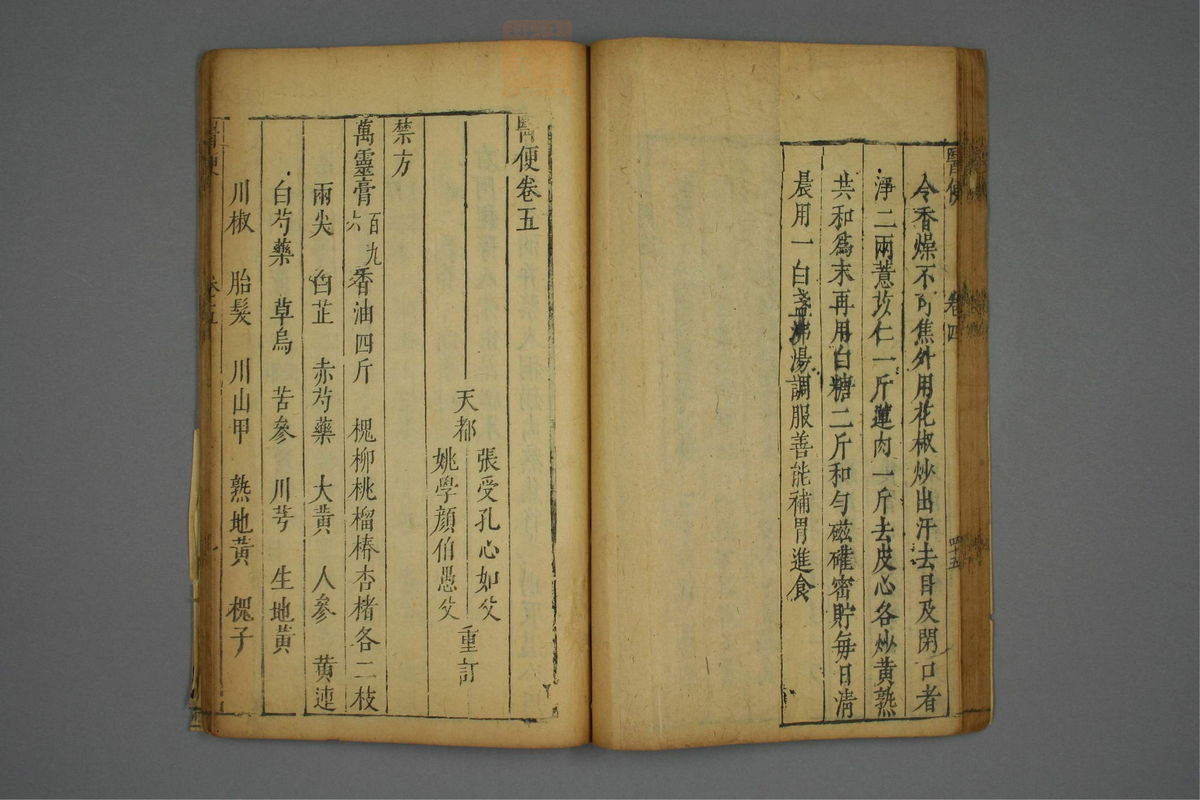 醫便
卷四
四十五
令香燥不可焦外用花椒炒出汗去目及閉口者
淨二兩薏苡仁一斤蓮肉一斤去皮心各炒黃熟
共和爲末再用白糖二斤和勻磁礶密貯每日淸
晨用一白盞沸湯調服善能補胃進食
醫便卷五
張受孔心如父
天都
重訂
姚學顏伯愚父
禁方
萬靈膏百九六香油四斤 槐柳桃榴椿杏楮各二枝
兩尖 白芷 赤芍藥 大黃 人參 黃連
白芍藥 草烏 苦參 川芎 生地黃
川椒 胎髮 川山甲 熟地黃 槐子
醫便
卷之五